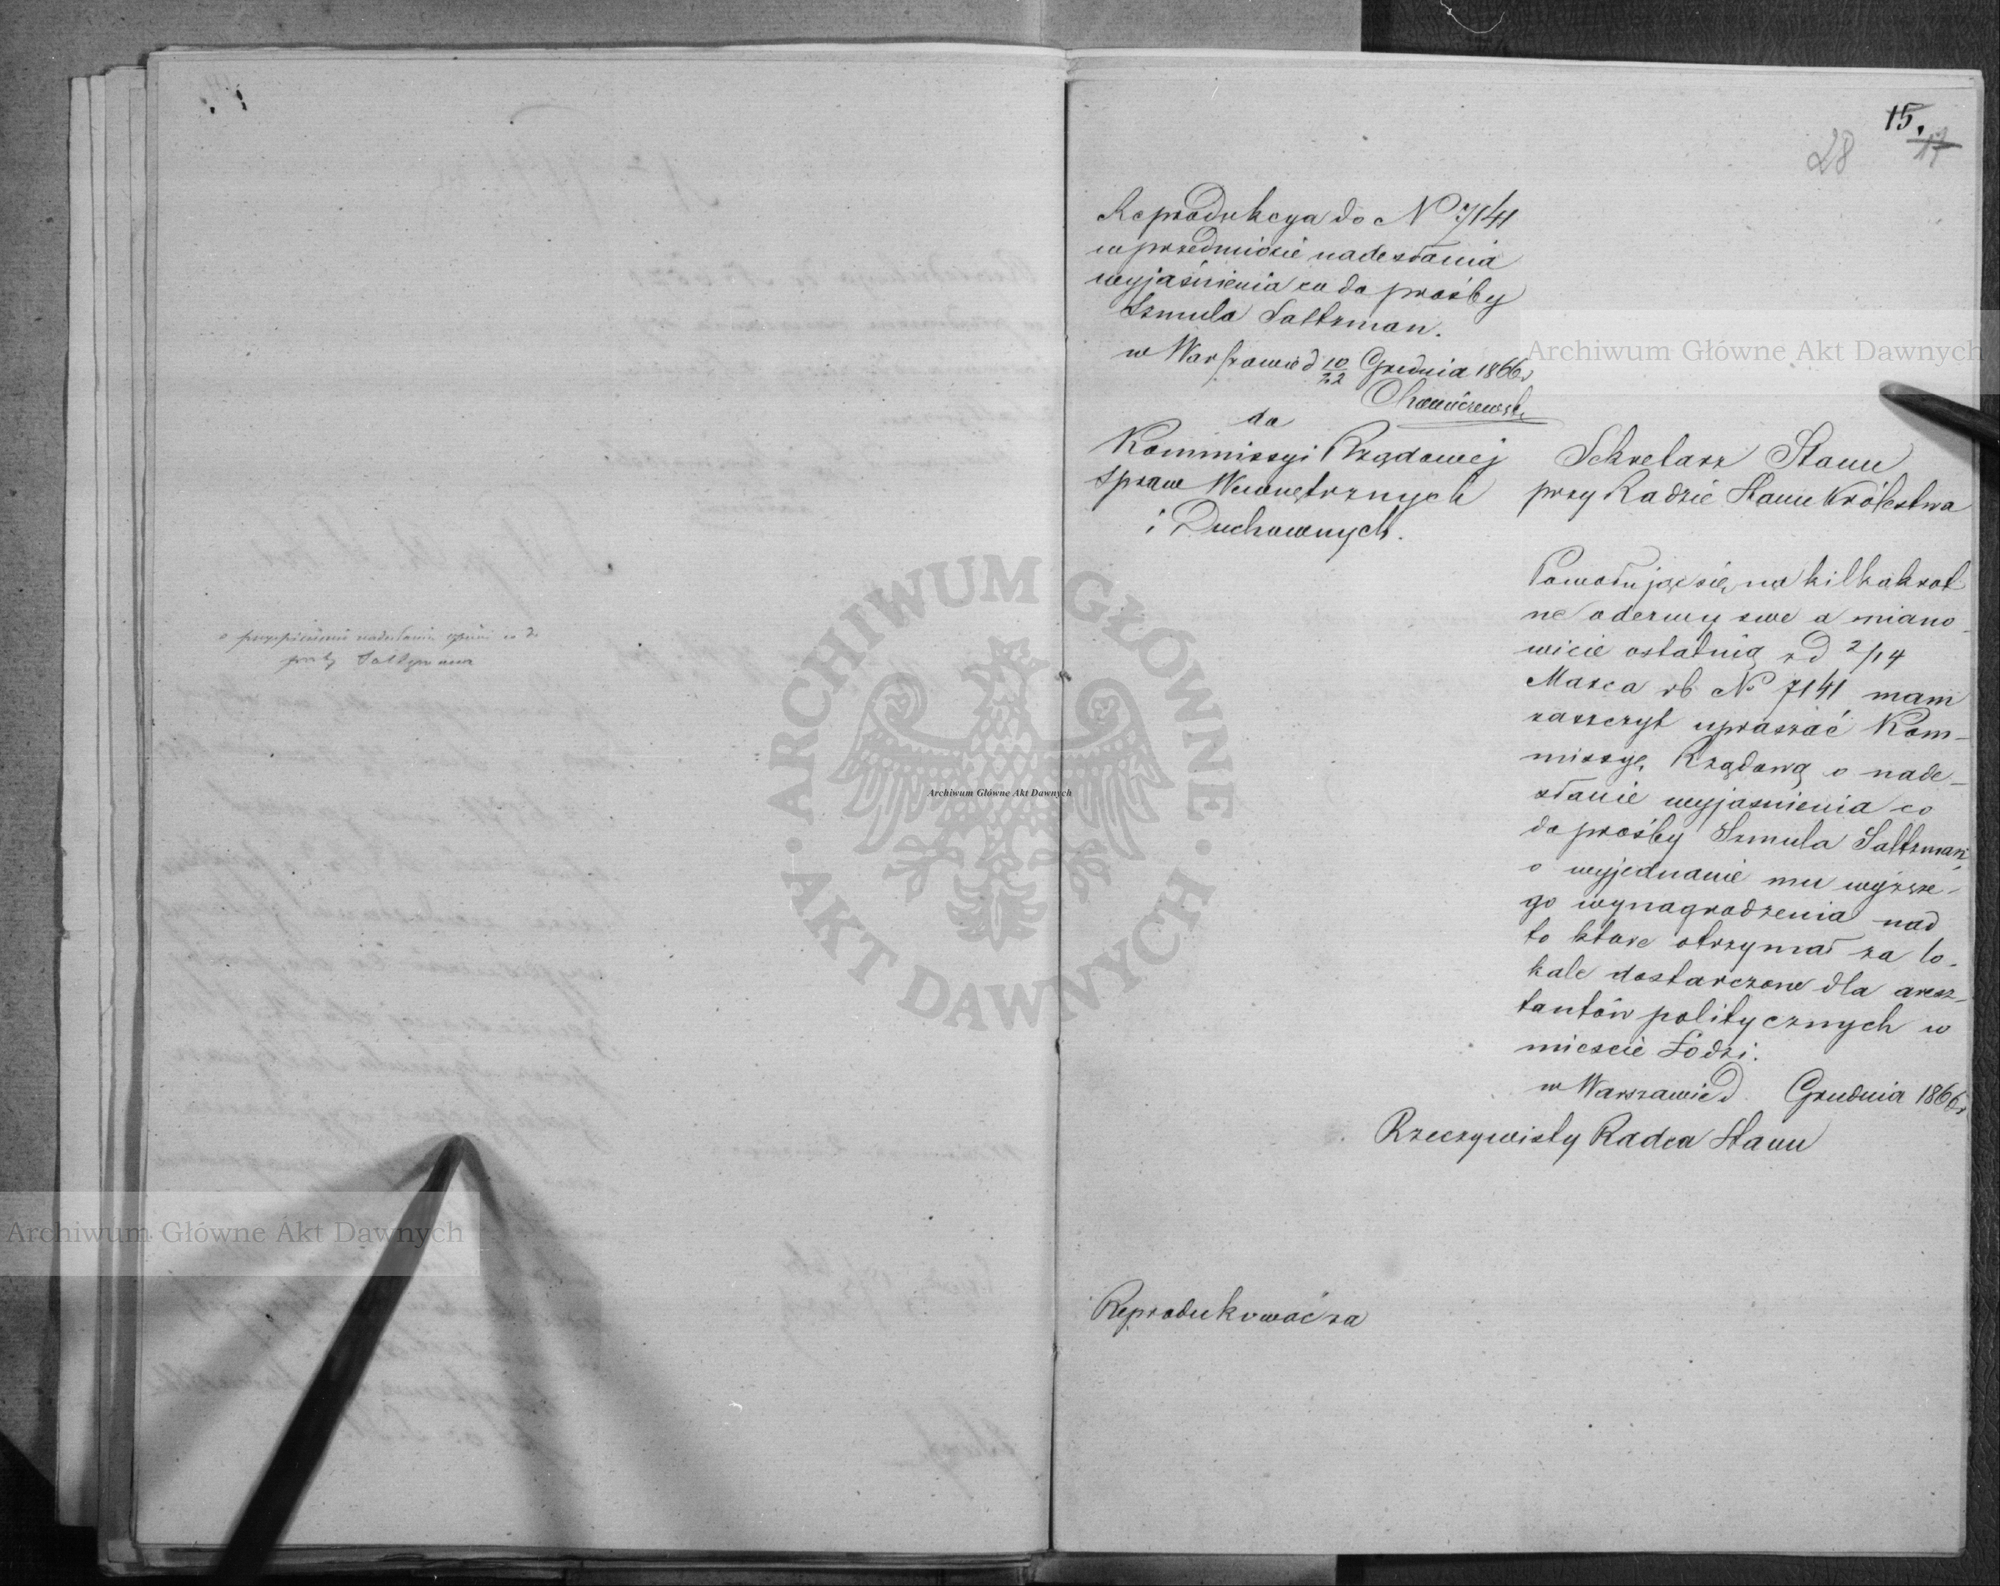 o przyspieszenie nadesłania opinii co do
prośby Saltzmana
15.
17
28
Reprodukcya do N 7141
w przedmiocie nadesłania
wyjaśnienia co do prośby
Szmula Saltzman.
w Warszawie d 10/22 Grudnia 1866 r
do
Kommissyi Rządowej
Spraw Wewnętrznych
i Duchownych.
Sekretarz Stanu
przy Radzie Stanu Królestwa
Powołując się na kilkakrot
ne odezwy swe a miano-
wicie ostatnią z d 2/14
Marca rb No 7141 mam
zaszczyt upraszać Kom-
missyę Rządową o nade-
słanie wyjasnienia co
do prośby Szmula Saltzman
o wyjednanie mu wyższe-
go wynagrodzenia nad
to które otrzymał za lo-
kale dostarczone dla aresz-
tantów politycznych w
miescie Łodzi.
w Warszawie d. Grudnia 1866 r
Rzeczywisty Radca Stanu
Reprodukować za
Archiwum Główne Akt Dawnych
Archiwum Główne Akt Dawnych
Archiwum Główne Akt Dawnych
ARCHIWUM GŁÓWNE
AKT DAWNYCH